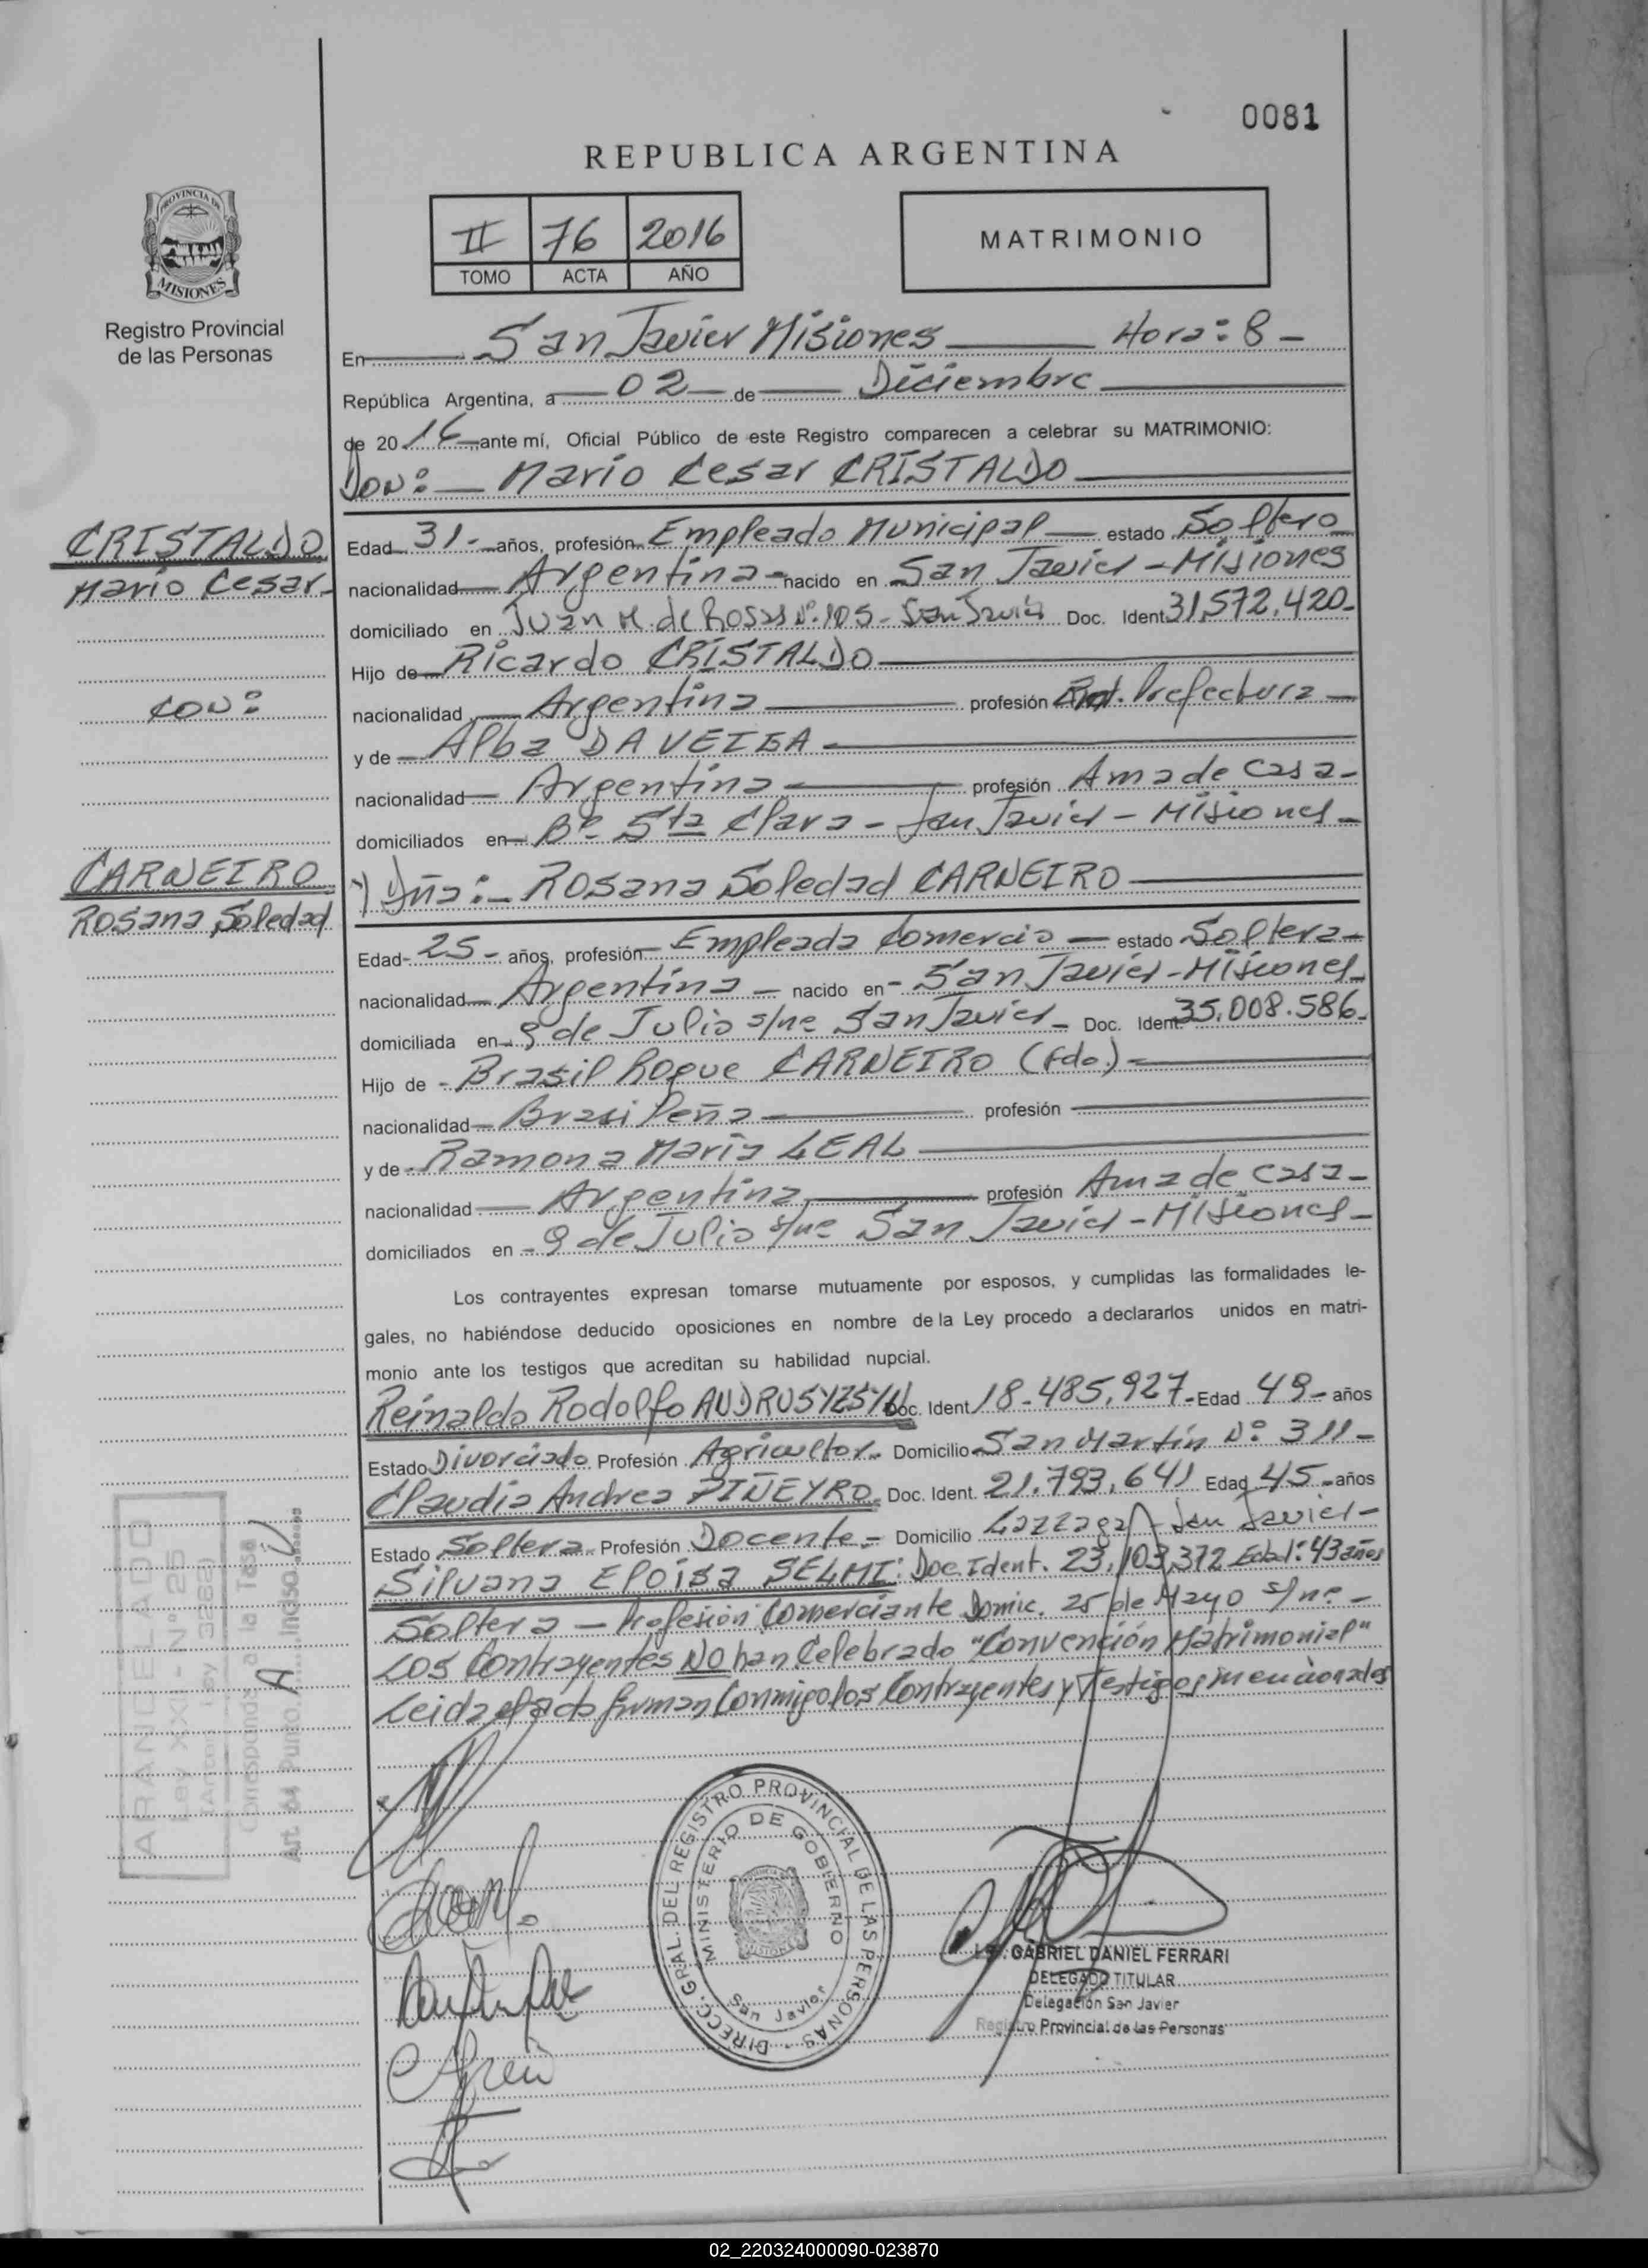 0081
REPUBLICA ARGENTINA
PROVINCIA DE
MISIONES
Registro Provincial
de las Personas
II 76 2016
TOMO ACTA AÑO
MATRIMONIO
En San Javier Misiones Hora: 8 -
República Argentina, a 02 de Diciembre
de 2016 ante mí, Oficial Público de este Registro comparecen a celebrar su MATRIMONIO:
DON: Mario Cesar CRISTALDO
CRISTALDO
Mario Cesar
CON:
CARNEIRO
Rosana Soledad
Edad 31 - años, profesión Empleado Municipal estado Soltero
nacionalidad Argentina - nacido en San Javier - Misiones
domiciliado en Juan M. de Rosas Nº 105 - San Javier Doc. Ident 31,572,420-
Hijo de Ricardo CRISTALDO
nacionalidad Argentina profesión Prefectura
y de Alba DA VEIGA
nacionalidad Argentina profesión Ama de casa -
domiciliados en Bº Sta Clara - San Javier - Misiones -
y Dña: - Rosana Soledad CARNEIRO
Edad - 25 - años, profesión Empleada Comercio estado Soltera -
nacionalidad Argentina nacido en - San Javier - Misiones -
domiciliada en 9 de Julio s/nº San Javier - Doc. Ident 35.008.586-
Hijo de - Brasil Roque CARNEIRO (Fdo.) -
nacionalidad Brasileña profesión
y de - Ramona María LEAL
nacionalidad Argentina profesión Ama de casa -
domiciliados en - 9 de Julio s/nº San Javier - Misiones -
Los contrayentes expresan tomarse mutuamente por esposos, y cumplidas las formalidades le-
gales, no habiéndose deducido oposiciones en nombre de la Ley procedo a declararlos unidos en matri-
monio ante los testigos que acreditan su habilidad nupcial.
Reinaldo Rodolfo ANDRUSYZSYN Doc. Ident 18-485,927- Edad 49 - años
Estado Divorciado Profesión Agricultor - Domicilio San Martín Nº 311 -
Claudia Andrea PIÑEYRO - Doc. Ident. 21,793,641 Edad 45 - años
Estado Soltera Profesión Docente - Domicilio San Javier -
Silvana Eloisa SELMI: Doc. Ident. 23,103,372 Edad: 43 años
Soltera - Profesión Comerciante Domic. 25 de Mayo s/nº -
Los Contrayentes NO han Celebrado "Convención Matrimonial"
Leida el acta firman Conmigo los Contrayentes y Testigos mencionados
ARANCELADO
Ley XXII - Nº 25
(Antes Ley 3262)
Corresponde a la Tasa
Art. 64 Punto A Inciso
DIRECC. GRAL. DEL REGISTRO PROVINCIAL DE LAS PERSONAS -
MINISTERIO DE GOBIERNO
San Javier
GABRIEL DANIEL FERRARI
DELEGADO TITULAR
Delegación San Javier
Registro Provincial de las Personas
02_220324000090-023870